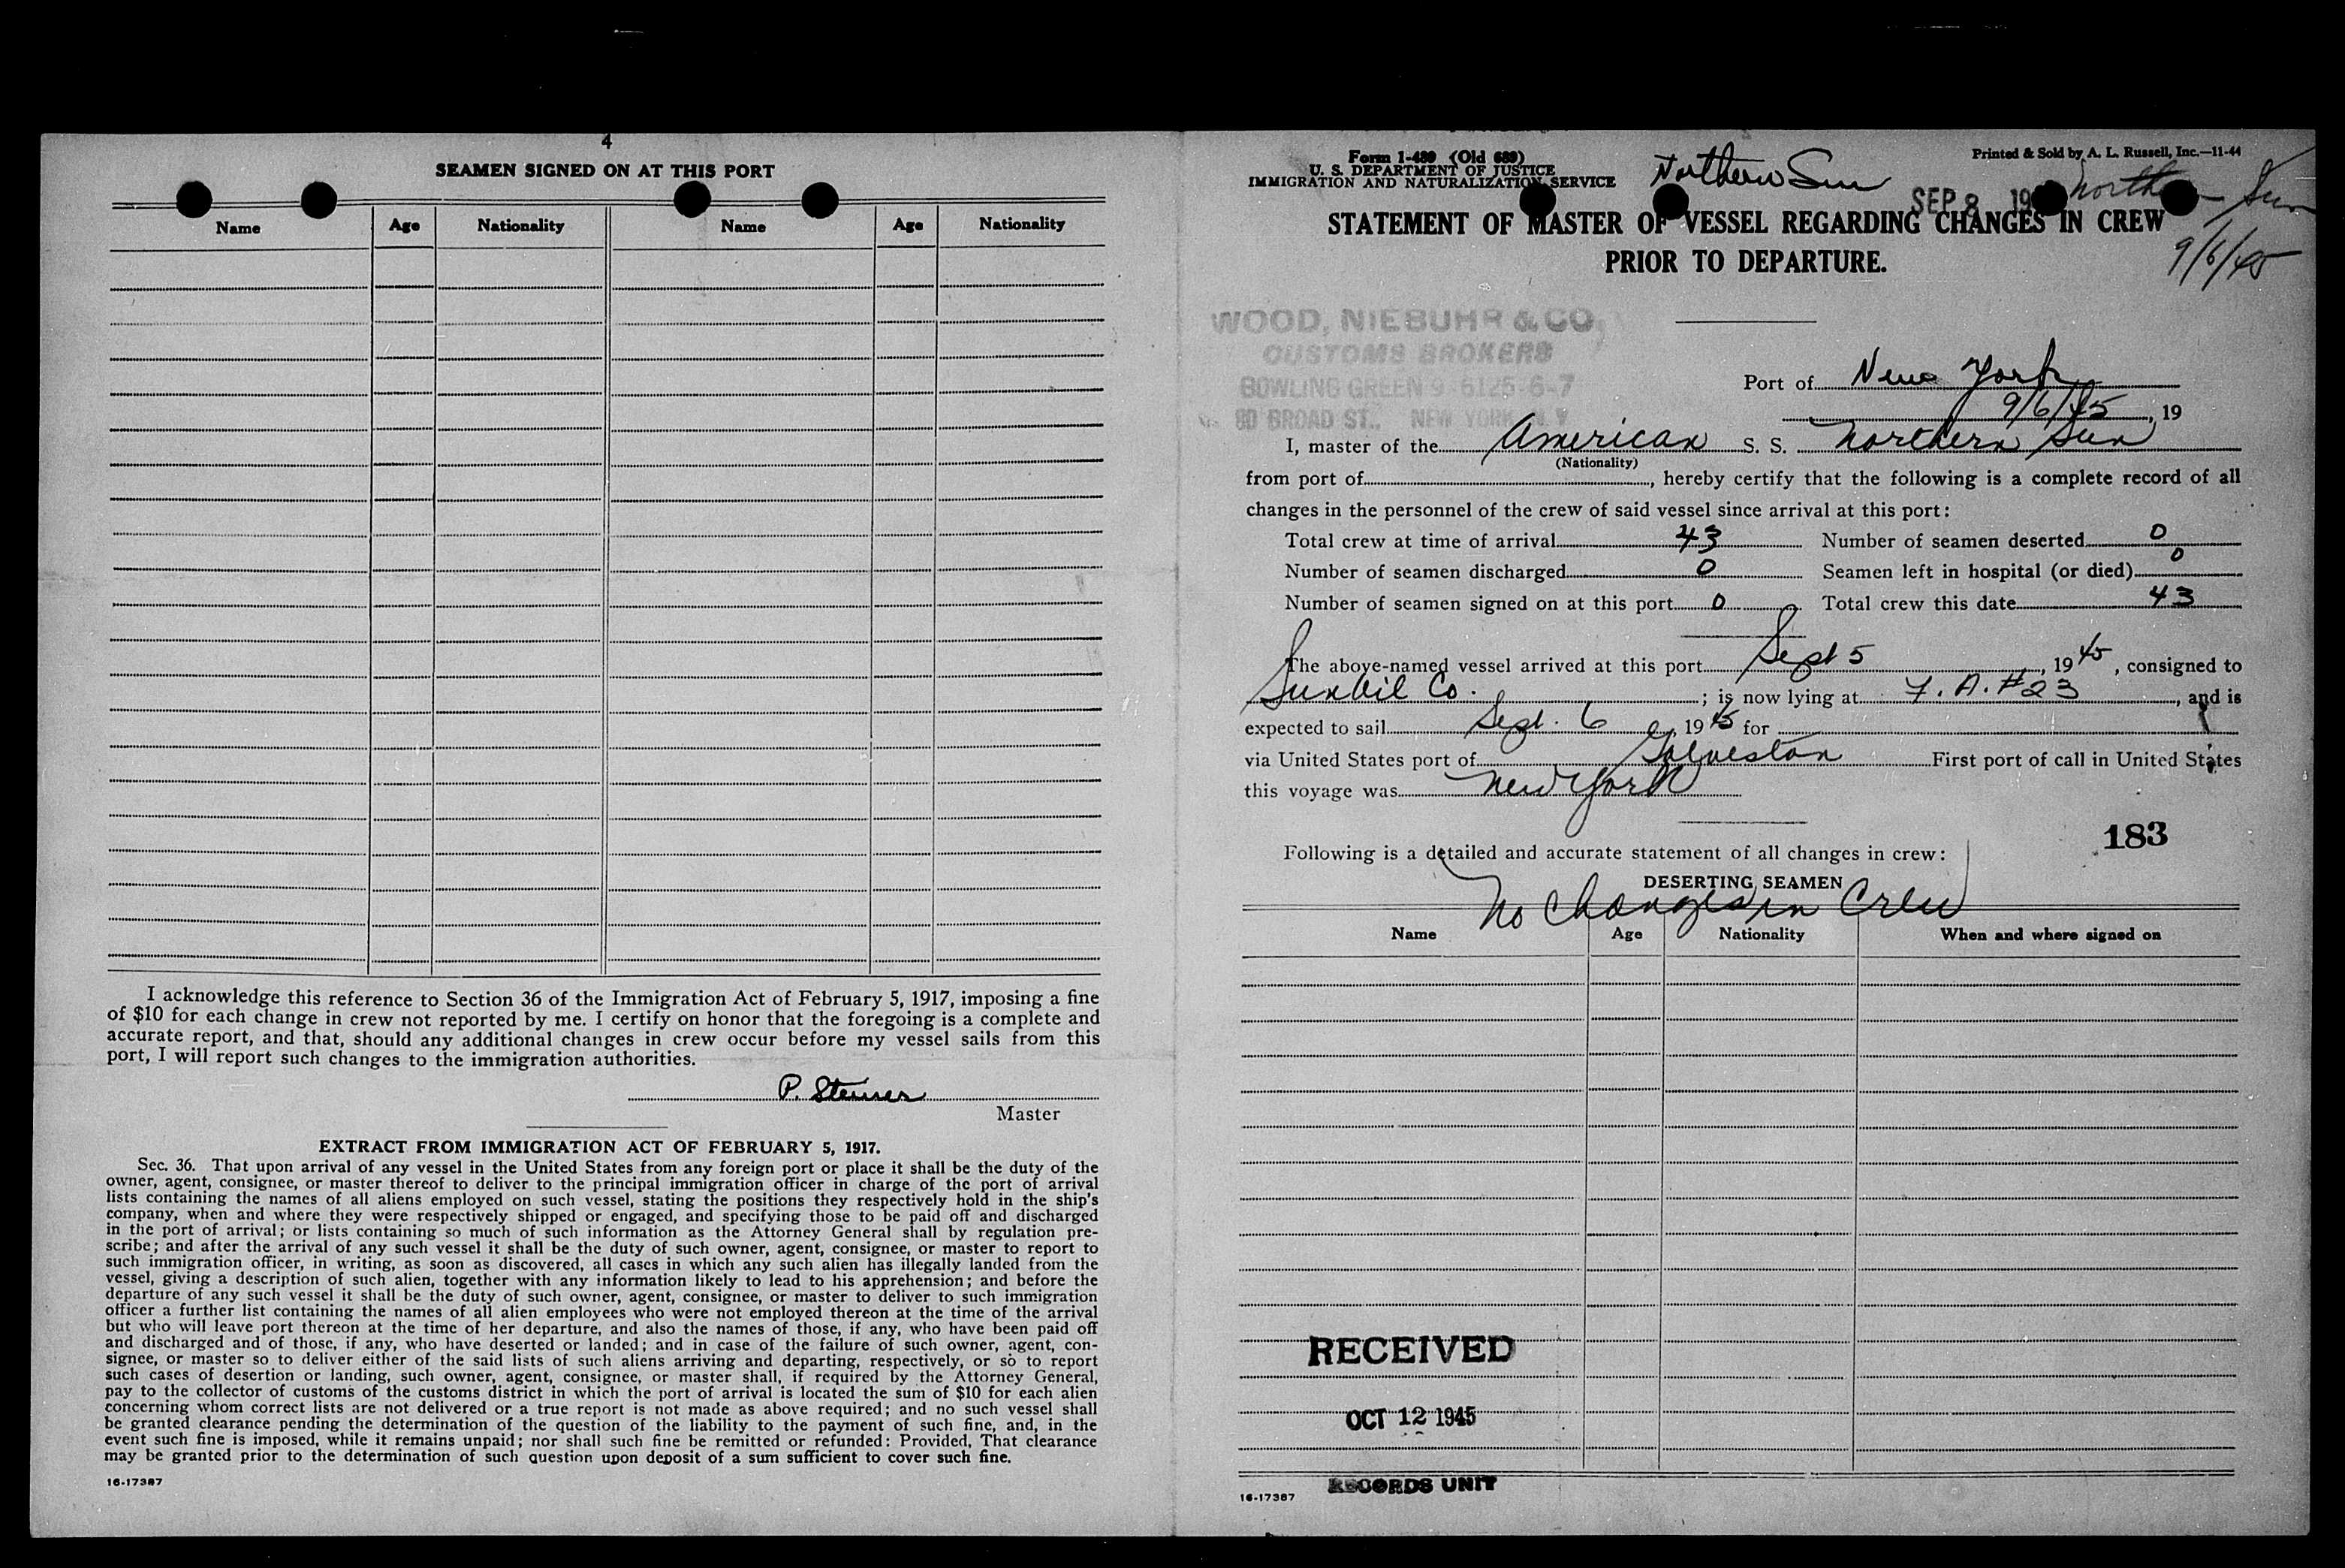 4
SEAMEN SIGNED ON AT THIS PORT
Name Age Nationality Name Age Nationality
I acknowledge this reference to Section 36 of the Immigration Act of February 5, 1917, imposing a fine
of $10 for each change in crew not reported by me. I certify on honor that the foregoing is a complete and
accurate report, and that, should any additional changes in crew occur before my vessel sails from this
port, I will report such changes to the immigration authorities.
P. Steiner
Master
EXTRACT FROM IMMIGRATION ACT OF FEBRUARY 5, 1917.
Sec. 36. That upon arrival of any vessel in the United States from any foreign port or place it shall be the duty of the
owner, agent, consignee, or master thereof to deliver to the principal immigration officer in charge of the port of arrival
lists containing the names of all aliens employed on such vessel, stating the positions they respectively hold in the ship's
company, when and where they were respectively shipped or engaged, and specifying those to be paid off and discharged
in the port of arrival; or lists containing so much of such information as the Attorney General shall by regulation pre-
scribe; and after the arrival of any such vessel it shall be the duty of such owner, agent, consignee, or master to report to
such immigration officer, in writing, as soon as discovered, all cases in which any such alien has illegally landed from the
vessel, giving a description of such alien, together with any information likely to lead to his apprehension; and before the
departure of any such vessel it shall be the duty of such owner, agent, consignee, or master to deliver to such immigration
officer a further list containing the names of all alien employees who were not employed thereon at the time of the arrival
but who will leave port thereon at the time of her departure, and also the names of those, if any, who have been paid off
and discharged and of those, if any, who have deserted or landed; and in case of the failure of such owner, agent, con-
signee, or master so to deliver either of the said lists of such aliens arriving and departing, respectively, or so to report
such cases of desertion or landing, such owner, agent, consignee, or master shall, if required by the Attorney General,
pay to the collector of customs of the customs district in which the port of arrival is located the sum of $10 for each alien
concerning whom correct lists are not delivered or a true report is not made as above required; and no such vessel shall
be granted clearance pending the determination of the question of the liability to the payment of such fine, and, in the
event such fine is imposed, while it remains unpaid; nor shall such fine be remitted or refunded: Provided, That clearance
may be granted prior to the determination of such question upon deposit of a sum sufficient to cover such fine.
16-17387
Form I-489 (Old 689)
U. S. DEPARTMENT OF JUSTICE
IMMIGRATION AND NATURALIZATION SERVICE
Northern Sun
Printed & Sold by A. L. Russell, Inc.—11-44
SEP 8 19
Northern Sun
9/6/45
STATEMENT OF MASTER OF VESSEL REGARDING CHANGES IN CREW
PRIOR TO DEPARTURE.
WOOD, NIEBUHR & CO.
CUSTOMS BROKERS
BOWLING GREEN 9-6125-6-7
80 BROAD ST., NEW YORK, N. Y.
Port of New York
9/6/45, 19
I, master of the American S. S. Northern Sun
(Nationality)
from port of , hereby certify that the following is a complete record of all
changes in the personnel of the crew of said vessel since arrival at this port:
Total crew at time of arrival 43 Number of seamen deserted 0
Number of seamen discharged 0 Seamen left in hospital (or died) 0
Number of seamen signed on at this port 0 Total crew this date 43
The above-named vessel arrived at this port Sept 5, 1945, consigned to
Sun Oil Co. ; is now lying at F. A. #23, and is
expected to sail Sept. 6, 1945 for
via United States port of Galveston First port of call in United States
this voyage was New York
183
Following is a detailed and accurate statement of all changes in crew:
DESERTING SEAMEN
No Changes in Crew
Name Age Nationality When and where signed on
RECEIVED
OCT 12 1945
RECORDS UNIT
16-17387